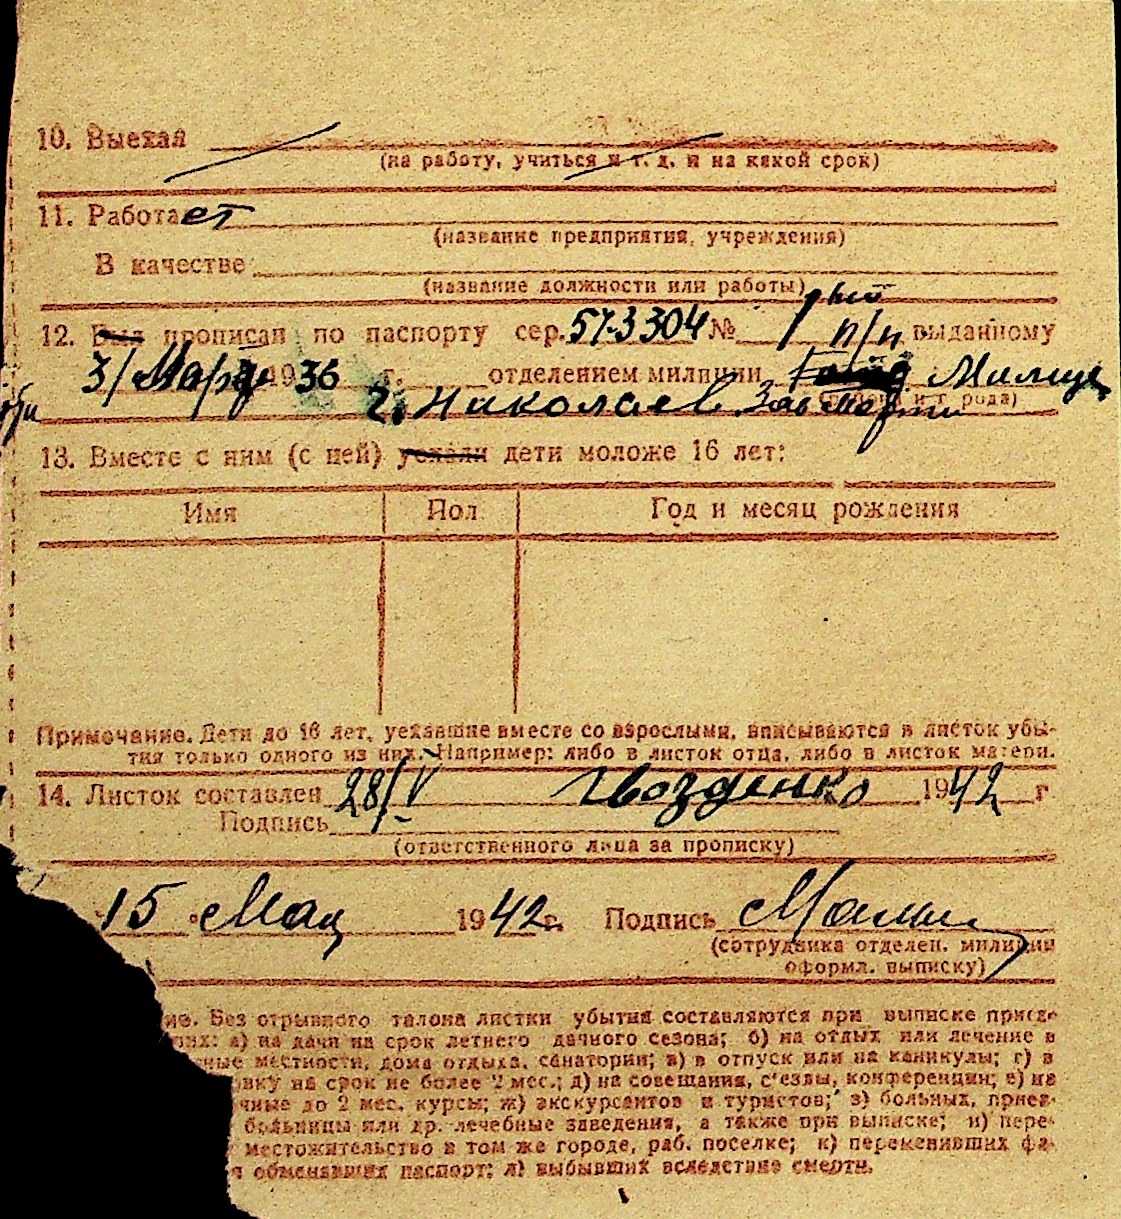 10. Выехал
(на работу, учиться и т. д. и на какой срок)
11. Работает
(название предприятия, учреждения)
В качестве
(название должности или работы)
12. Был прописан по паспорту сер. 573304 № 1 п/п выданному
31 Марта 1936 г. отделением милиции Милиц
г. Николаев
13. Вместе с ним (с ней) уехали дети моложе 16 лет:
Имя Пол Год и месяц рождения
Примечание. Дети до 16 лет, уехавшие вместе со взрослыми, вписываются в листок убы-
тия только одного из них. Например: либо в листок отца, либо в листок матери.
14. Листок составлен 28/V Гвозденко 1942 г
Подпись
(ответственного лица за прописку)
15 Мая 1942 г. Подпись
(сотрудника отделен. милиции
оформл. выписку)
ие. Без отрывного талона листки убытия составляются при выписке
а) на дачи на срок летнего дачного сезона; б) на отдых или лечение в
ные местности, дома отдыха, санатории; в) в отпуск или на каникулы; г) в
овку на срок не более 2 мес.; д) на совещания, с'езды, конференции; е) на
чные до 2 мес. курсы; ж) экскурсантов и туристов; з) больных,
больницы или др. лечебные заведения, а также при выписке; и) пере-
местожительство в том же городе, раб. поселке; к) переменивших фа-
я обменявших паспорт; л) выбывших вследствие смерти.